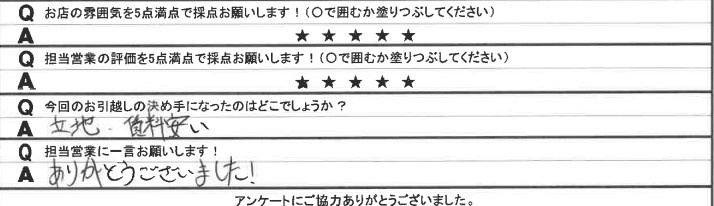 Q お店の雰囲気を5点満点で採点お願いします！(〇で囲むか塗りつぶしてください)
A ★ ★ ★ ★ ★
Q 担当営業の評価を5点満点で採点お願いします！(〇で囲むか塗りつぶしてください)
A ★ ★ ★ ★ ★
Q 今回のお引越しの決め手になったのはどこでしょうか？
A 立地、賃料安い
Q 担当営業に一言お願いします！
A ありがとうございました!
アンケートにご協力ありがとうございました。